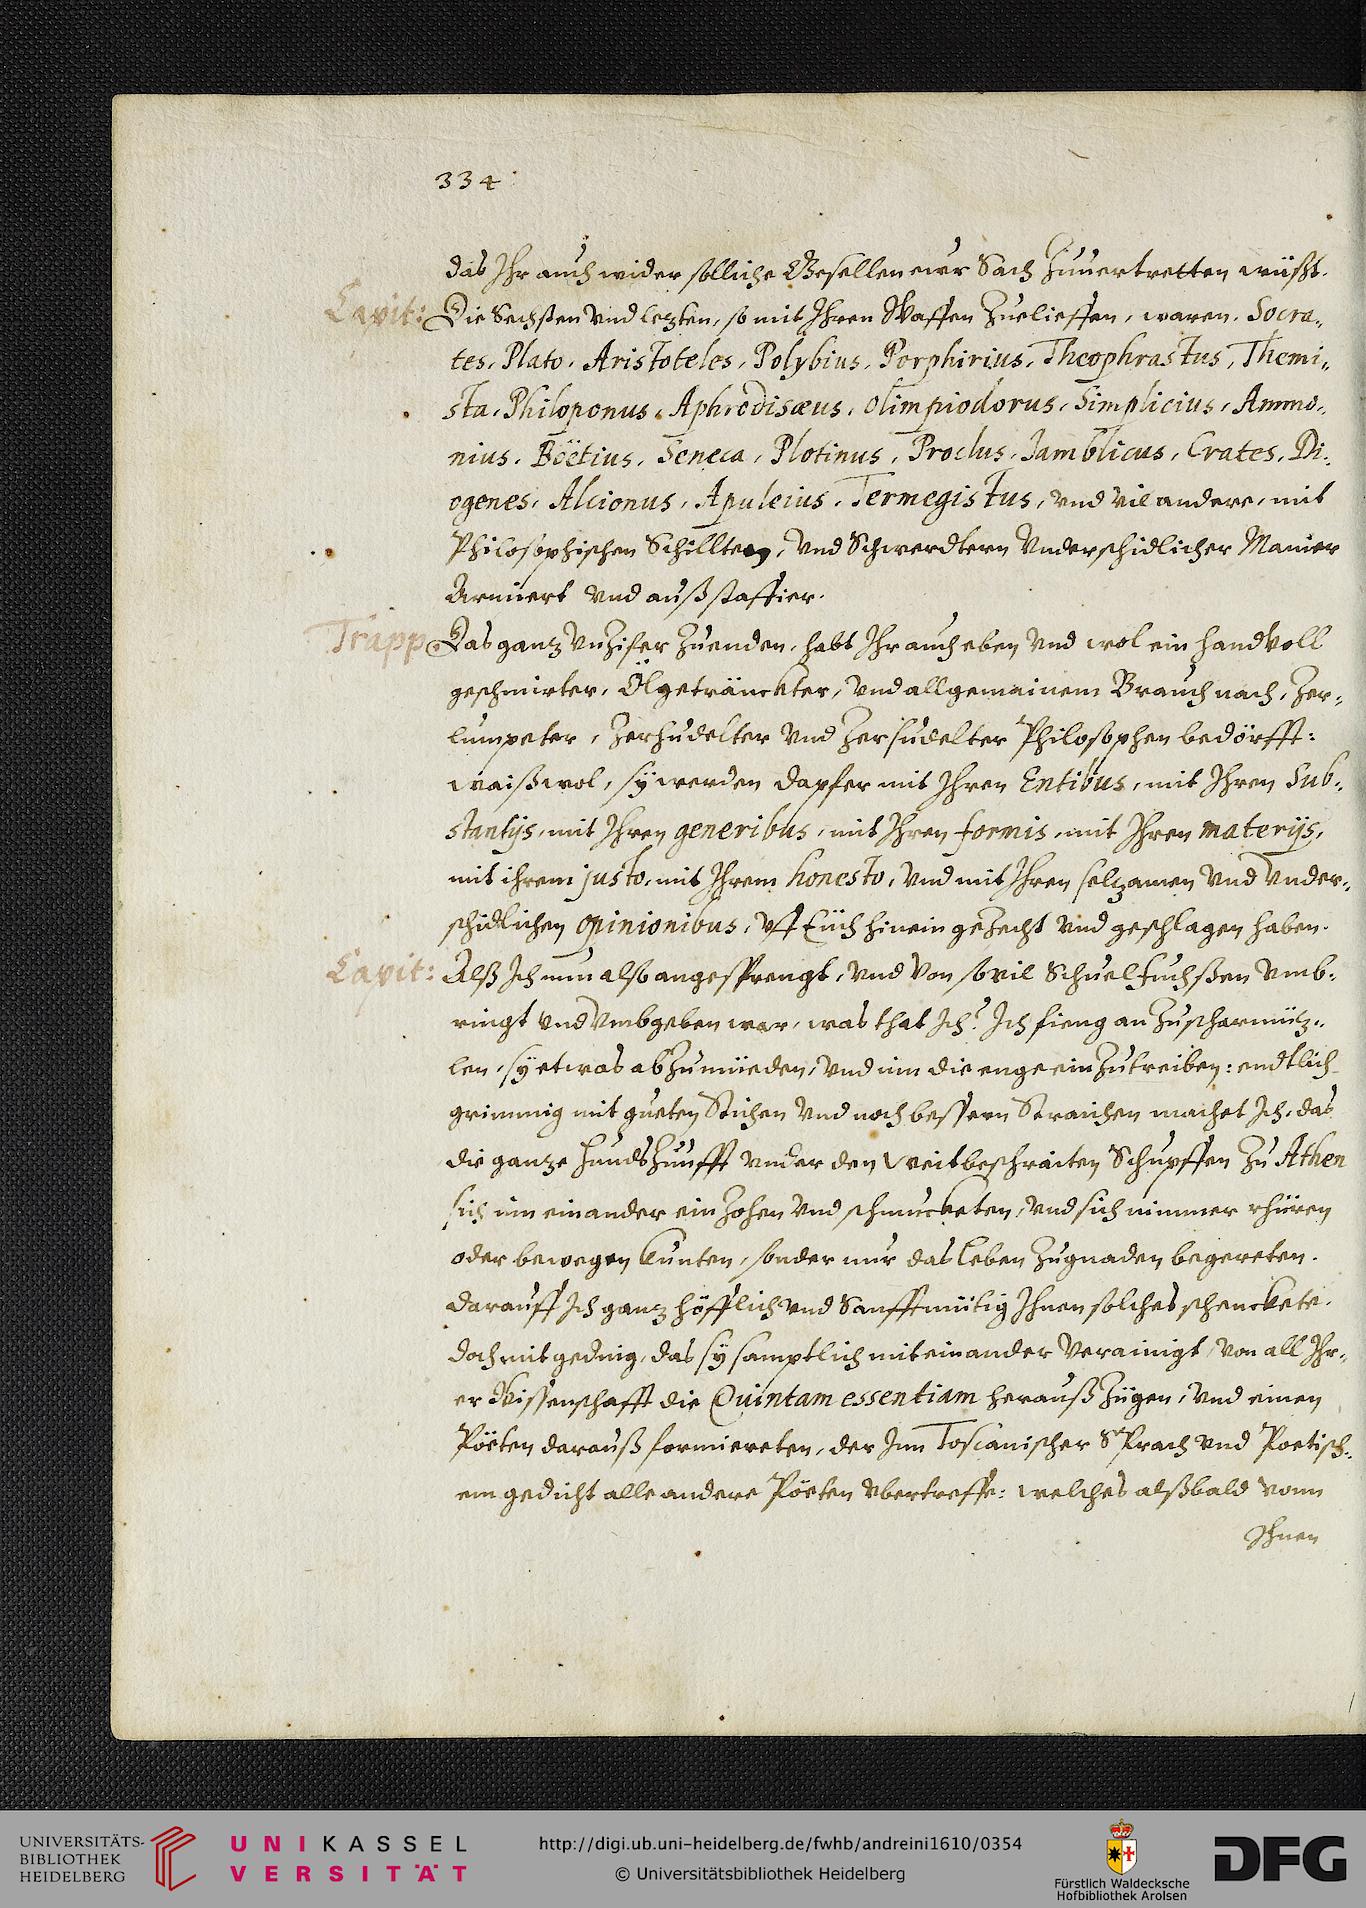 334
das Ihr auch wider solliche Gesellen ewr Sach Zuuertretten wüßt.
Capit: Die Sechsten vnd letzten, so mit Ihren Waffen Zuelieffen, waren, Socra„
tes, Plato, Aristoteles, Polybius, Porphirius, Theophrastus, Themi„
sta, Philoponus, Aphrodisæus, Olimpiodorus, Simplicius, Ammo„
nius, Boëtius, Seneca, Plotinus, Proclus, Jamblicus, Crates, Di„
ogenes, Alcionus, Apuleius, Termegistus, vnd vil andere, mit
Philosophischen Schillten, vnd Schwerdtern vnderschidlicher Manier
Armiert vnd außstaffier.
Trapp: Das ganz Vnzifer Zuenden, habt Ihr auch eben vnd wol ein handtvoll
geschmirter, Ölgetränckter, vnd allgemainem Brauch nach, Zer„
lumpeter, Zerhudelter vnd Zersudelter Philosophen bedörfft:
waiß wol, sÿ werden dapfer mit Ihren Entibus, mit Ihren Sub„
stantijs, mit Ihren generibus, mit Ihren formis, mit Ihren materijs,
mit ihrem justo, mit Ihrem honesto, vnd mit Ihren selzamen vnd vnder„
schidlichen opinionibus, vff Eüch hinein gezecht vnd geschlagen haben.
Capit: Alß Ich nun also angesprengt, vnd von sovil Schuelfuchßen vmb„
ringt vnd vmbgeben war, was that Ich? Ich fieng an Zuscharmütz„
len, sÿ etwas abZumüeden, vnd inn die enge einZutreiben: endtlich
grimmig mit gueten Stichen vnd noch bessern Straichen machet Ich, das
die ganze Hundszunfft vnder den weitbeschraiten Schupffen Zu Athen
sich inn einander einZohen vnd schmucketen, vnd sich nimmer rhüren
oder bewegen kunten, sonder nur das Leben Zugnaden begereten.
Darauff Ich ganz höfflich vnd Sanfftmütig Ihnen solches schenckete,
doch mit geding, das sÿ samptlich miteinander verainigt, von all Ihr„
er Wissenschafft die Quintam essentiam heraußZügen, vnd einen
Poëten darauß formiereten, der Inn Toscanischer Sprach vnd Poetisch„
em gedicht alle andere Poëten vbertreffe: welches alßbald vonn
Ihnen
UNIVERSITÄTS-
BIBLIOTHEK
HEIDELBERG
UNIKASSEL
VERSITÄT
http://digi.ub.uni-heidelberg.de/fwhb/andreini1610/0354
© Universitätsbibliothek Heidelberg
Fürstlich Waldecksche
Hofbibliothek Arolsen
DFG